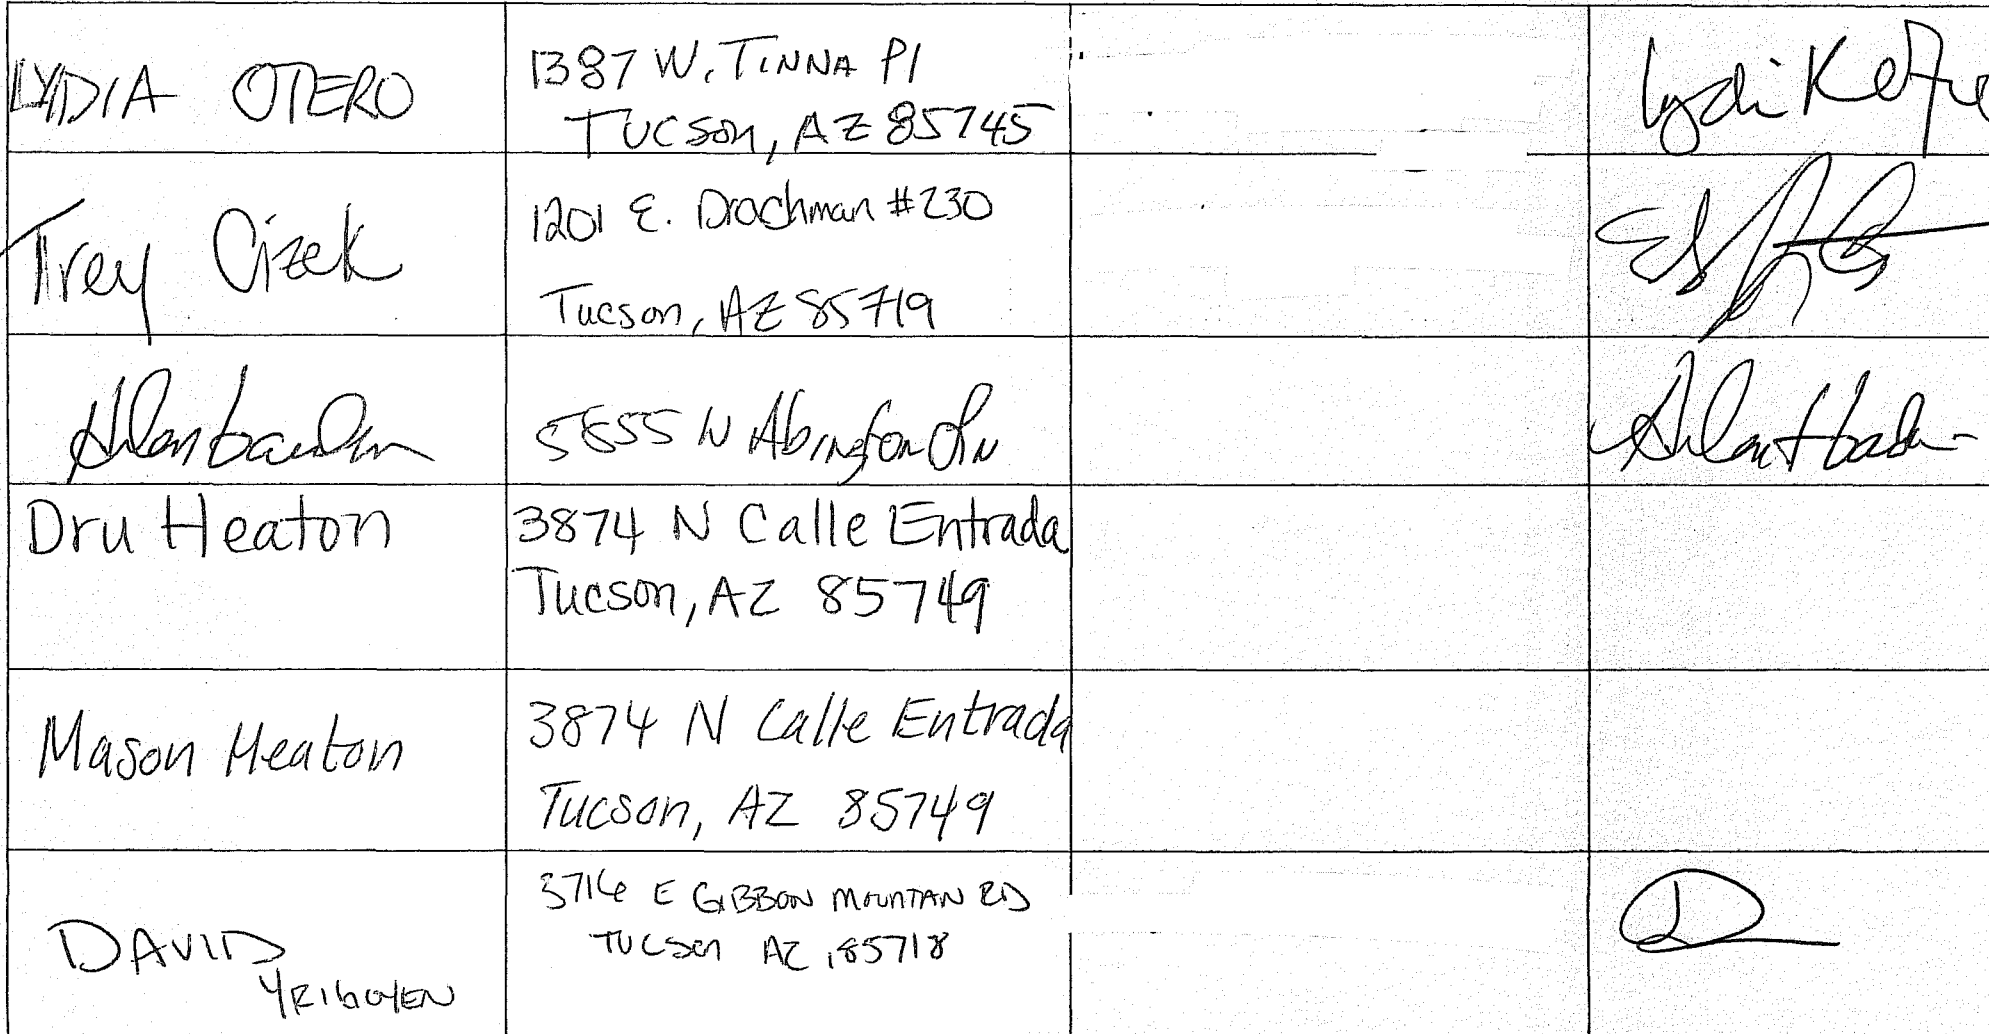 LYDIA OTERO
1387 W. TINNA Pl
TUCSON, AZ 85745
Trey Cizek
1201 E. Drachman #230
Tucson, AZ 85719
5655 N Abington Ln
Dru Heaton
3874 N Calle Entrada
Tucson, AZ 85749
Mason Heaton
3874 N Calle Entrada
Tucson, AZ 85749
DAVID
YRIGOYEN
3716 E GIBBON MOUNTAIN RD
TUCSON AZ, 85718